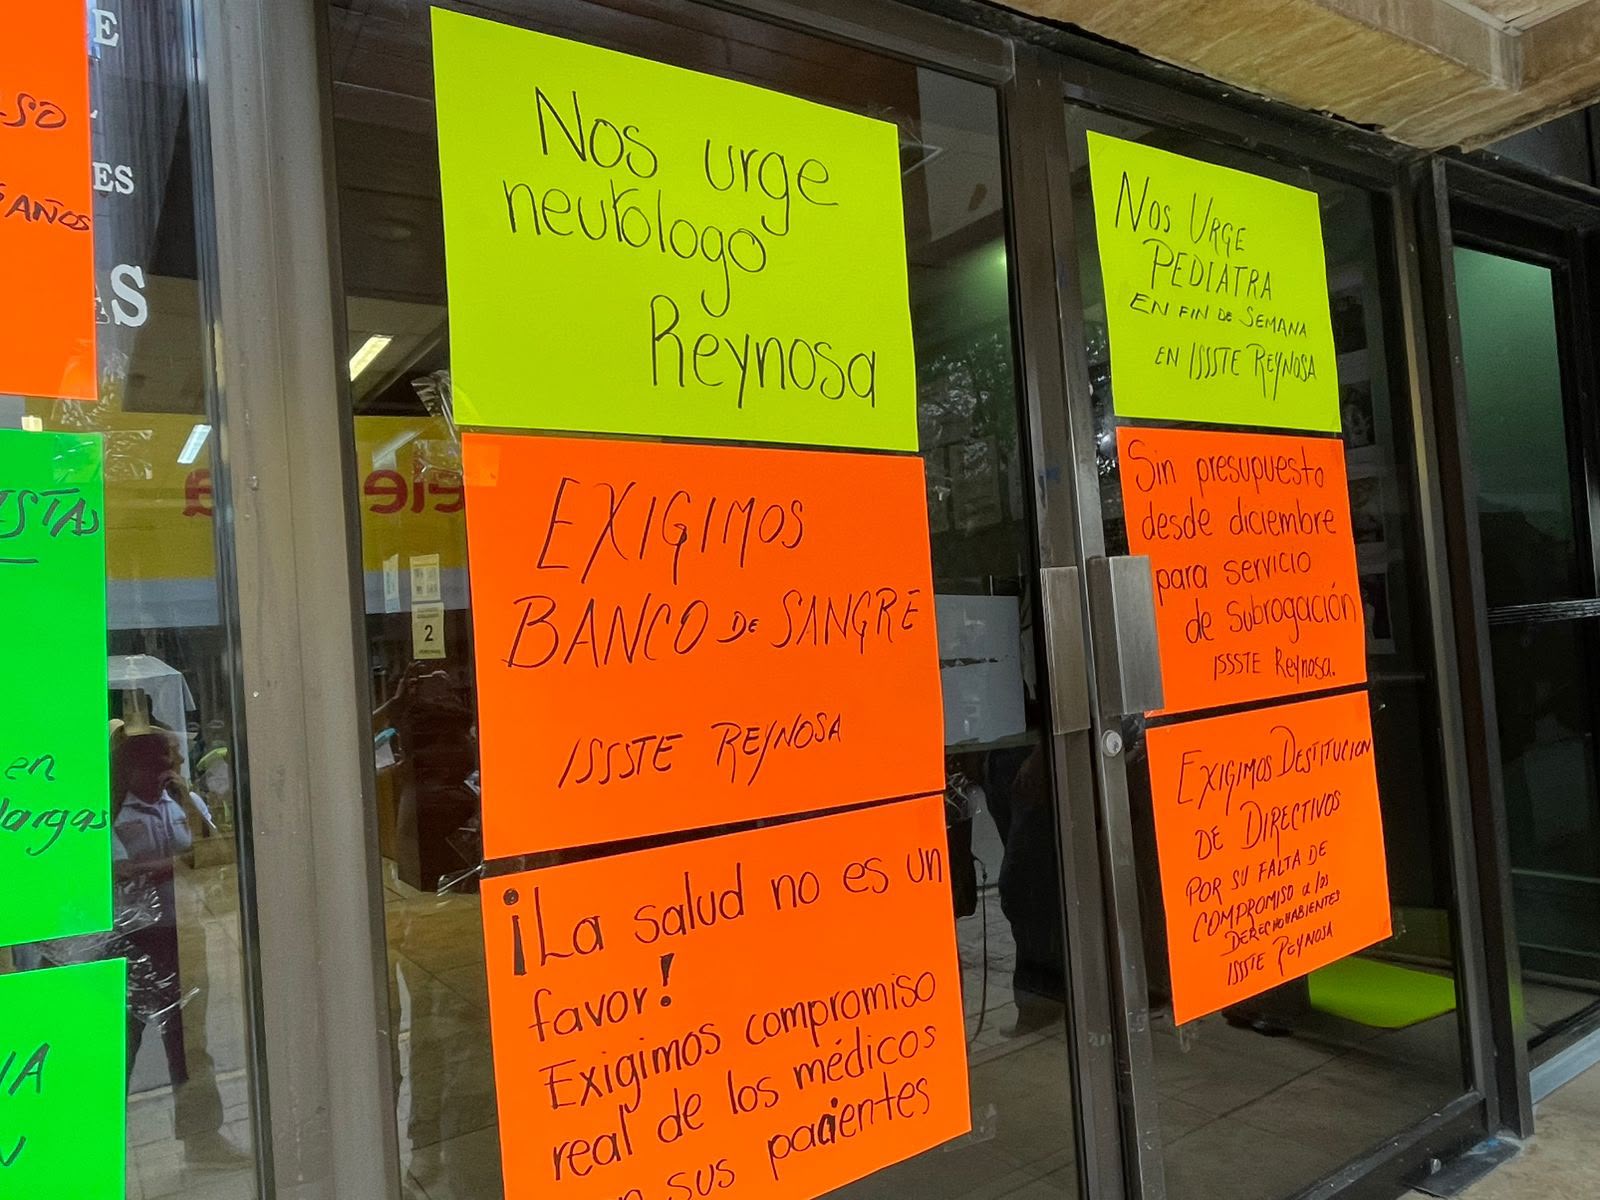 E
ES
AS
AÑOS
en
largas
2
Nos urge
neurólogo
Reynosa
EXIGIMOS
BANCO DE SANGRE
ISSSTE REYNOSA
¡La salud no es un
favor!
Exigimos compromiso
real de los médicos
sus pacientes
NOS URGE
PEDIATRA
EN FIN DE SEMANA
EN ISSSTE REYNOSA
Sin presupuesto
desde diciembre
para servicio
de Subrogación
ISSSTE Reynosa.
EXIGIMOS DESTITUCION
DE DIRECTIVOS
POR SU FALTA DE
COMPROMISO a los
DERECHOHABIENTES
ISSSTE REYNOSA